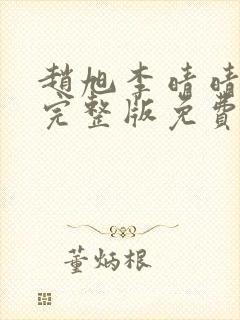 趙旭李晴晴
完整版免費
董炳根